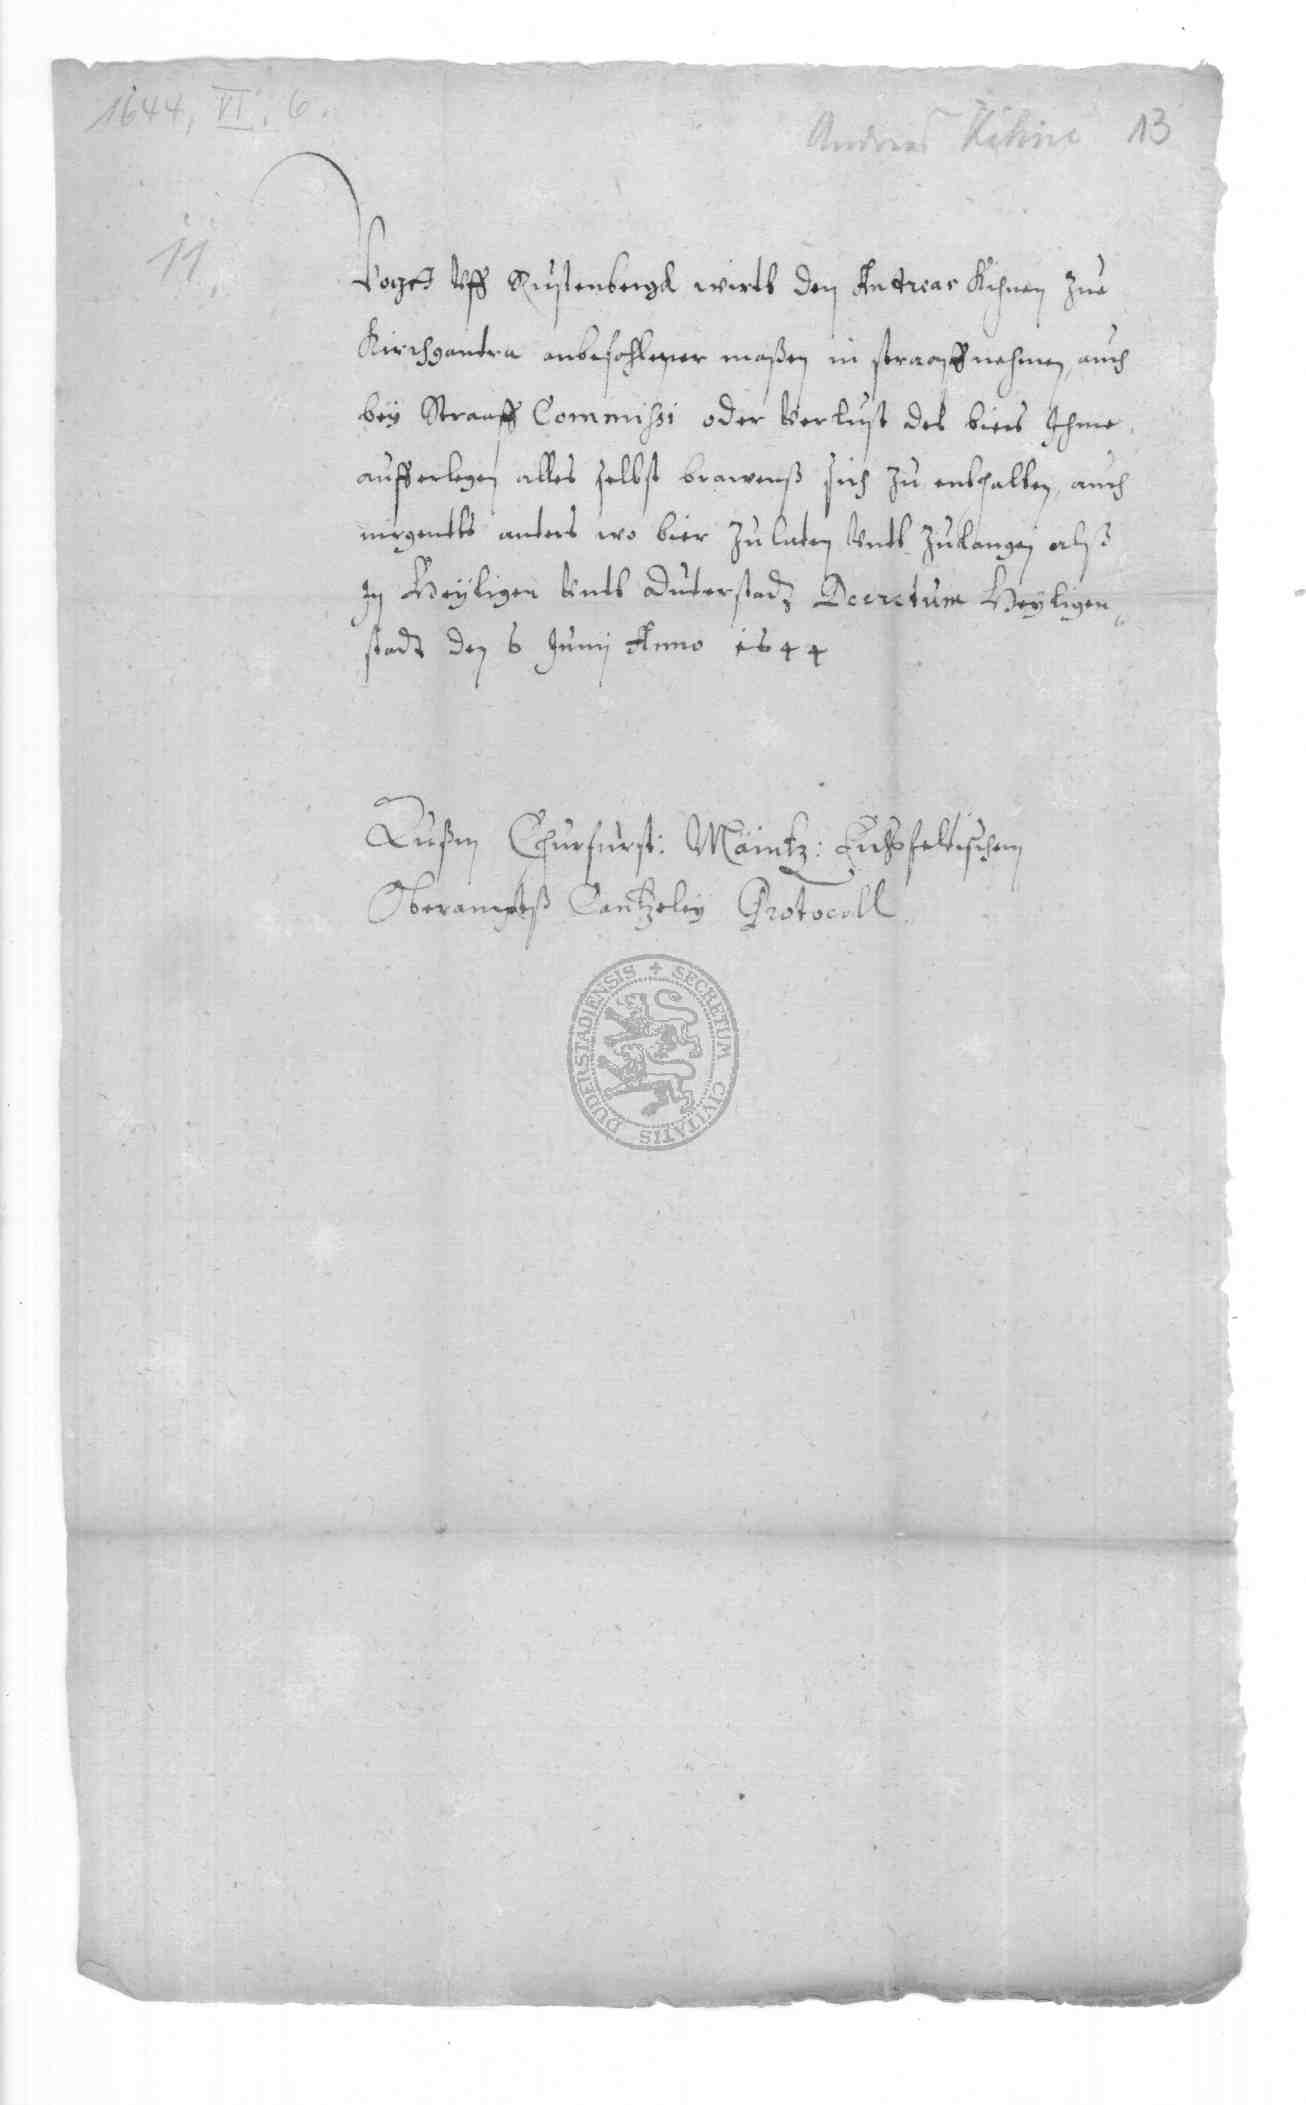 1644, VI. 6.
Andreas Kühne 13
11
Vogt Vff Rustenbergk wirdt den Andreas Kihnen zue
Kirchgandra anbefohlener maßen in straaff nehmen, auch
bey Straaff Commissi oder Verlust des biers Ihme
aufferlegen alles selbst brawenß sich zu enthalten, auch
nirgendts anders wo bier zu laden Vndt zulangen alß
In Heyligen Vndt Duderstadt Decretum Heyligen„
stadt den 6 Junij Anno 1644
Außm Churfürst: Mäintz: Eichsfeltischem
Oberamptß Cantzeley Protocoll.
SECRETUM CIVITATIS DUDERSTADIENSIS